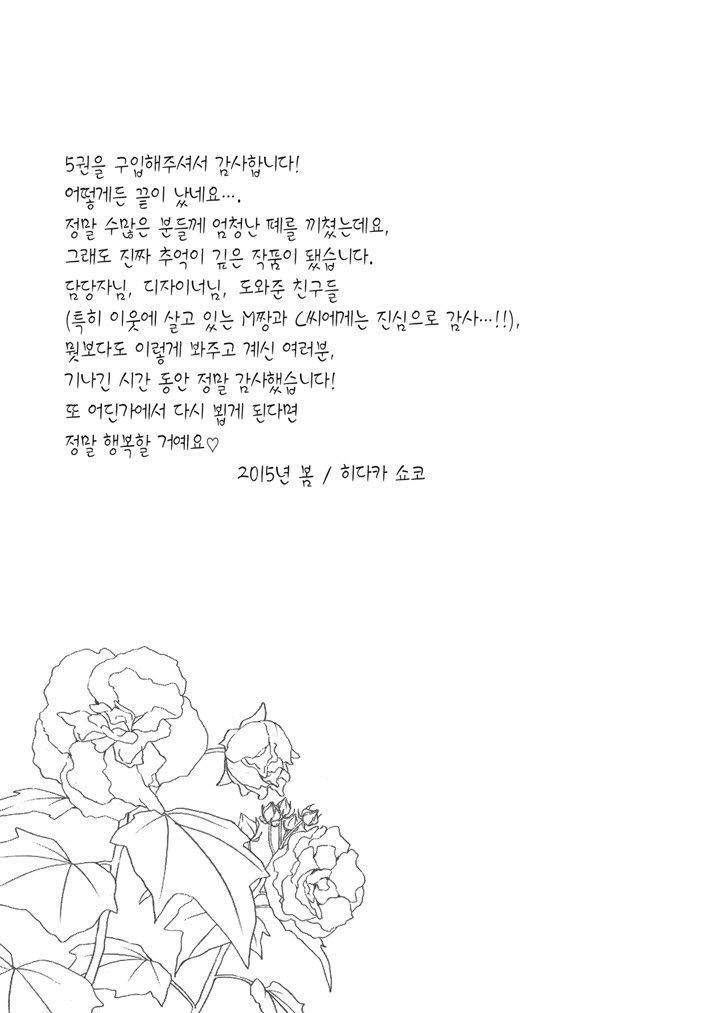 5권을 구입해주셔서 감사합니다!
어떻게든 끝이 났네요….
정말 수많은 분들께 엄청난 폐를 끼쳤는데요,
그래도 진짜 추억이 깊은 작품이 됐습니다.
담당자님, 디자이너님, 도와준 친구들
(특히 이웃에 살고 있는 M짱과 C씨에게는 진심으로 감사…!!),
뭣보다도 이렇게 봐주고 계신 여러분,
기나긴 시간 동안 정말 감사했습니다!
또 어딘가에서 다시 뵙게 된다면
정말 행복할 거예요♡
2015년 봄 / 히다카 쇼코